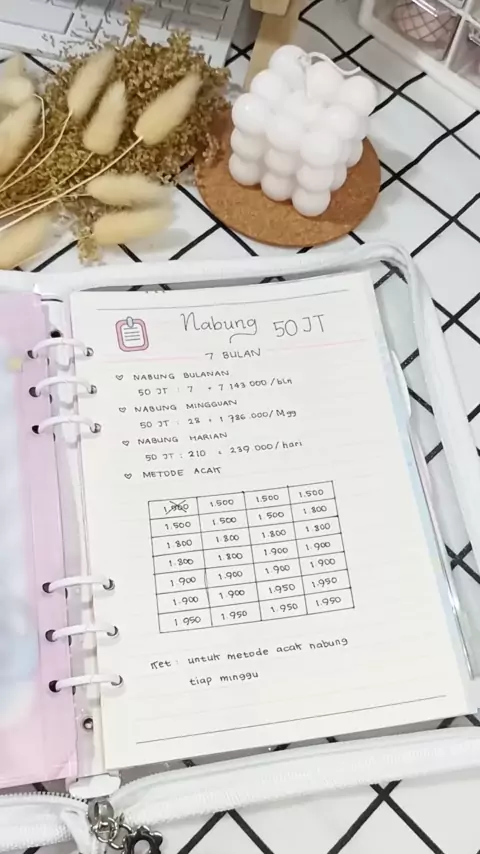 Nabung 50 JT
7 BULAN
NABUNG BULANAN
50 JT : 7 = 7 143 000 /bln
NABUNG MINGGUAN
50 JT : 28 = 1 786.000/Mgg
NABUNG HARIAN
50 JT : 210 = 239 000/hari
METODE ACAK
1.500 1.500 1.500 1.500
1.500 1.500 1.500 1.800
1.800 1.800 1.800 1.800
1.800 1.800 1.900 1.900
1.900 1.900 1.900 1.900
1.900 1.900 1.950 1.950
1.950 1.950 1.950 1.950
Ket : untuk metode acak nabung
tiap minggu